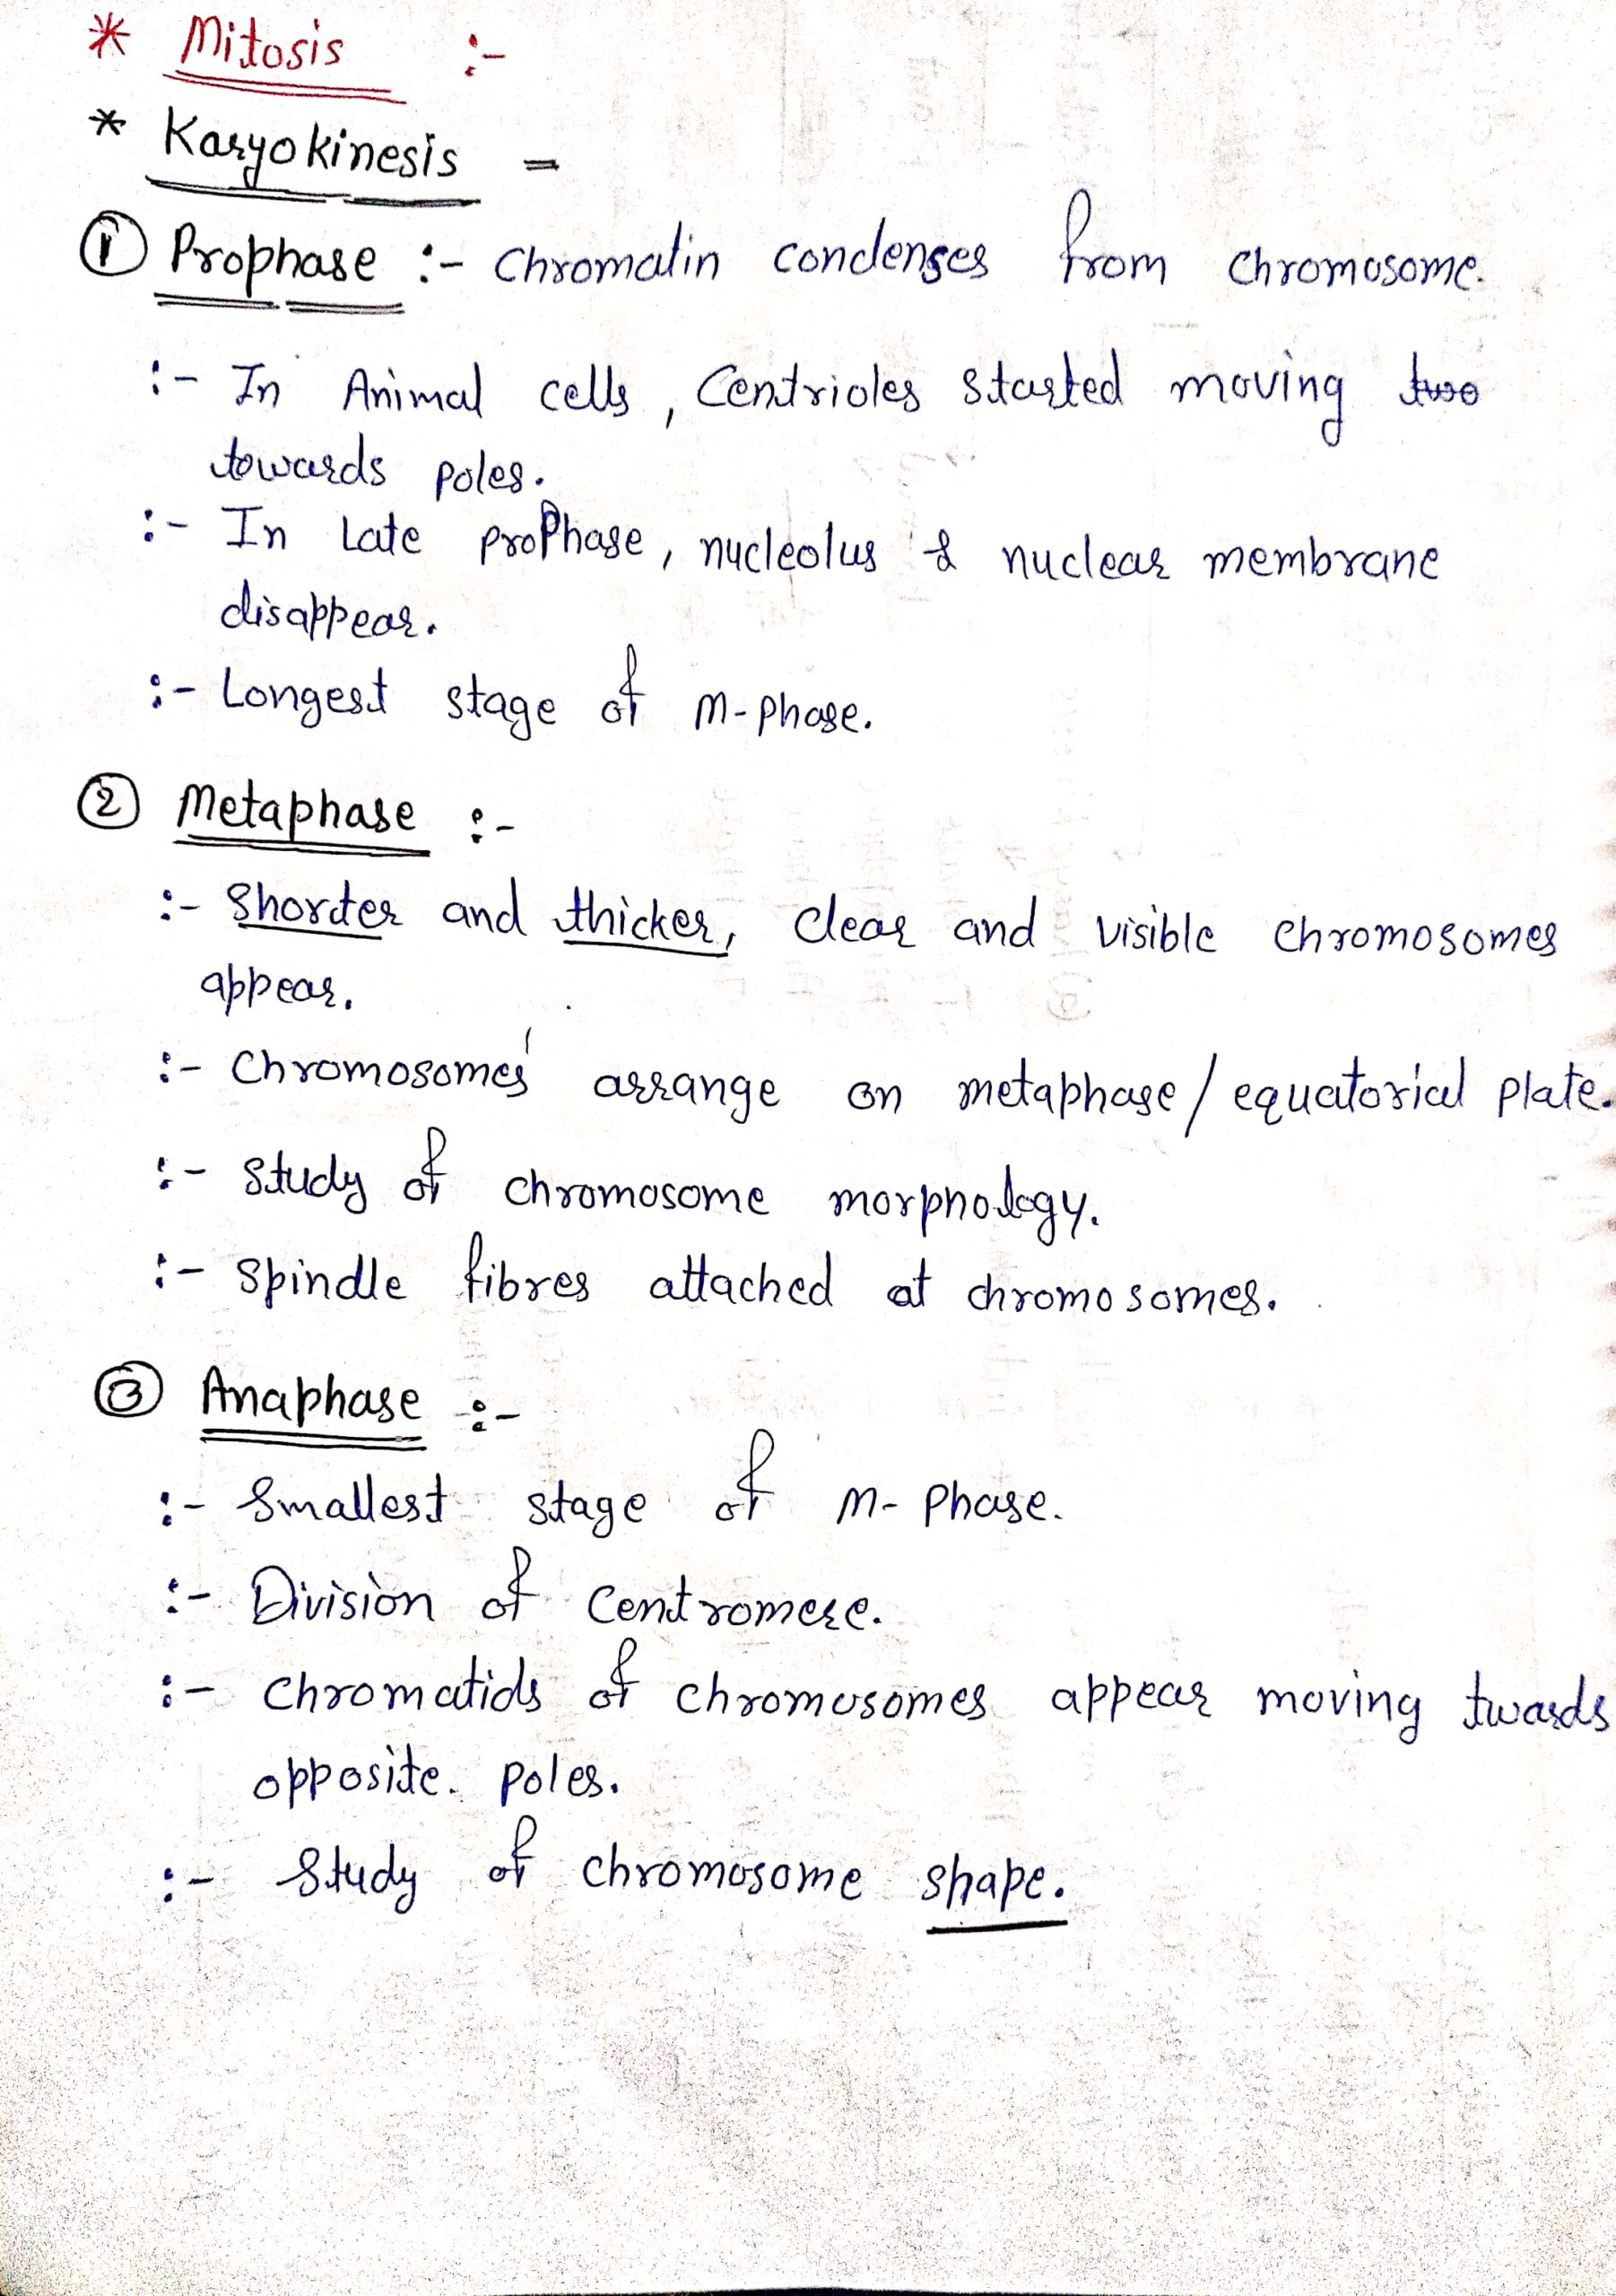 * Mitosis :-
* Karyokinesis =
① Prophase :- Chromatin condenses from chromosome.
:- In Animal cells, Centrioles started moving two
towards poles.
:- In Late proPhase, nucleolus & nuclear membrane
disappear.
:- Longest stage of M-phase.
② Metaphase :-
:- Shorter and thicker, Clear and visible chromosomes
appear.
:- Chromosomes arrange on metaphase/equatorial plate.
:- Study of chromosome morphology.
:- Spindle fibres attached at chromosomes.
③ Anaphase :-
:- Smallest stage of M-Phase.
:- Division of Centromere.
:- Chromatids of chromosomes appear moving twards
opposite poles.
:- Study of chromosome shape.